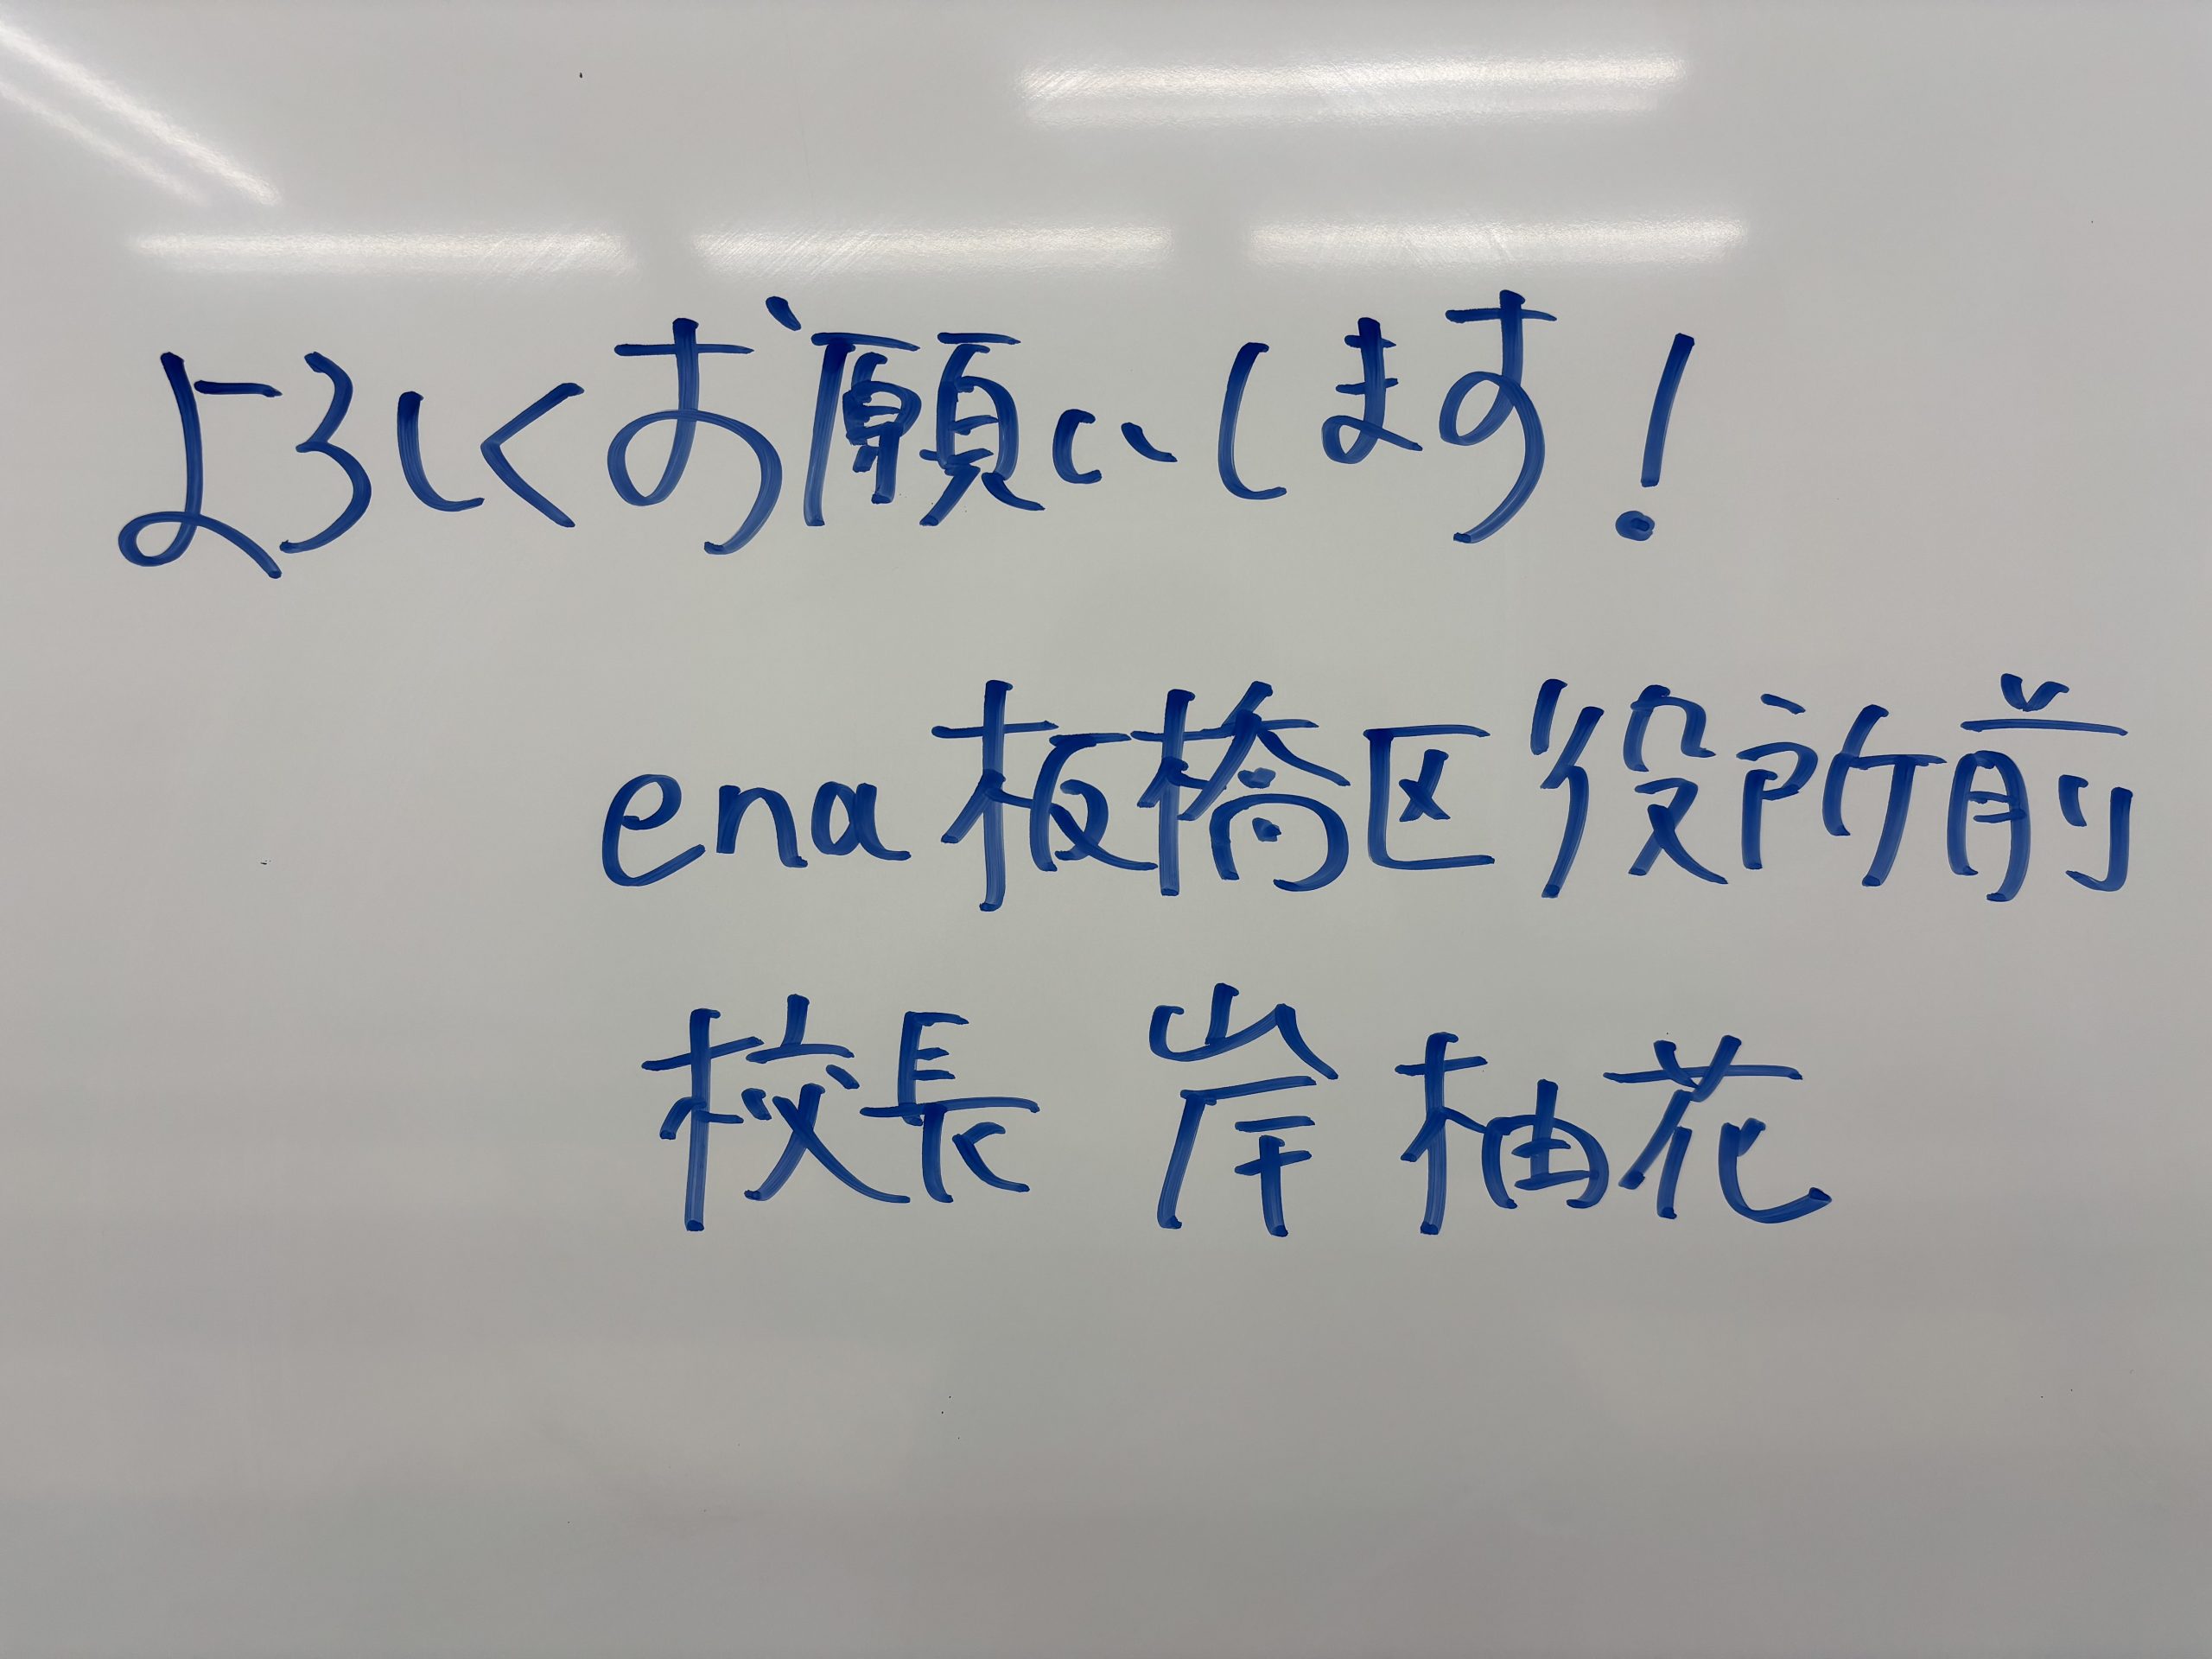 よろしくお願いします!
ena 板橋区役所前
校長 岸 柚花